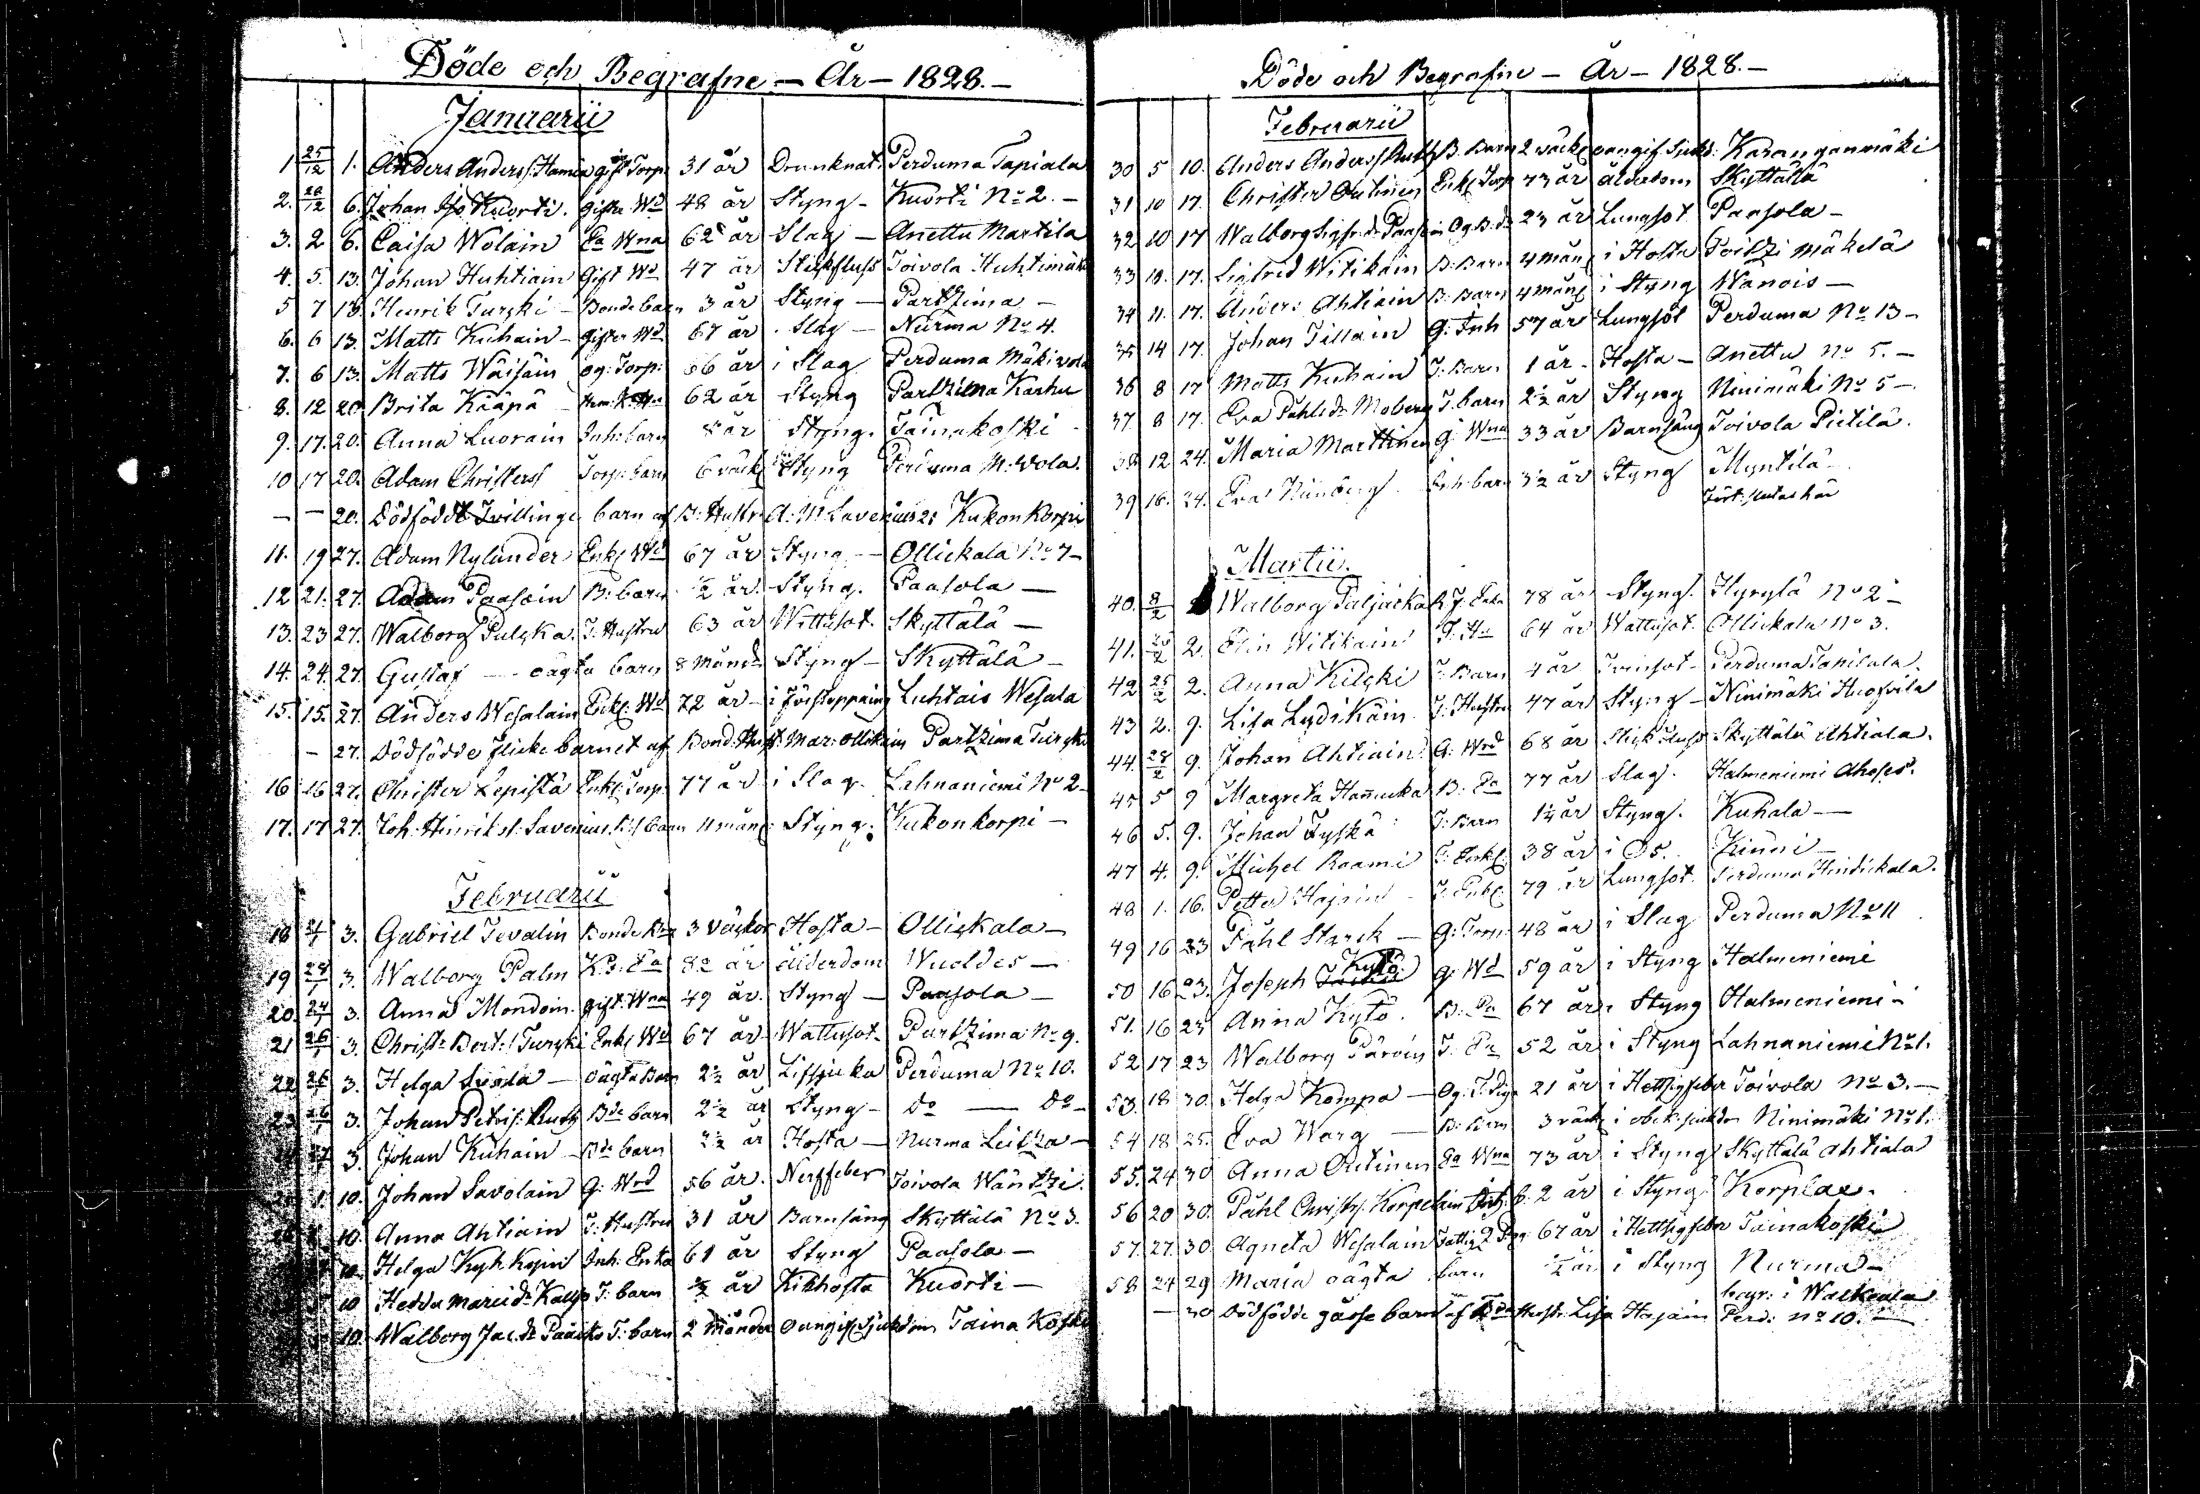 Döde och Begrafne - År - 1828.-
Januarii
1 25/12 1. Anders Anderss: Hamin gift Torp. 31 år Drunknat. Perduma Tapiala
2. 26/12 6. Johan Kuorti. gifte Wd 48 år Styng - Kuorti No 2. -
3. 2 6. Caisa Wolain Ea Wna 62 år Slag - Anettu Martila
4. 5. 13. Johan Huhtiain Gift Wd 47 år Stickfluss Toivola Huhtimäki
5 7 13. Henrik Turzki - Bonde barn 3 år Styng - Partzima -
6. 6 13. Matts Kuhain - gifter Wd 67 år Slag - Nurma No 4.
7. 6 13. Matts Wäisäin og: Torp: 56 år i Slag Perduma Mäkivola
8. 12 20. Brita Kääpä 62 år Styng Partzima Karhu
9. 17. 20. Anna Luorain Inh: barn 8 år Styng. Tainakoski
10 17 20. Adam Christerss Torp: barn 6 väck Styng Perduma M: wola.
- - 20. Dödfödde Tvillinge barn af B: Hustr A: M Savenius 2: Kukonkorpi
11. 19 27. Adam Nylander Enkl Wd 67 år Styng - Ollickala No 7 -
12 21. 27. Adam Paasoin B: barn 1/2 år Styng. Paasola -
13. 23 27. Walborg Pulska. I: Hustru 63 år Wattusot. Skyttälä -
14. 24. 27. Gustaf - oägta barn 8 månd Styng - Skyttälä -
15. 15. 27. Anders Wesalain Enkl: Wd 72 år - i förstoppning Luhtais Wesala
- 27. Dödfödde flicke barnet af Bond: Hust: Mar: Ollikain Partzima Turzki
16 16 27. Christer Lepistä Enkl: Torp. 77 år i Slag. Lahnaniemi No 2 -
17. 17 27. Joh: Hinrikss: Savenius barn 11 mån: Styng. Kukonkorpi -
Februarii
18 3. Gabriel Tevalin Bonde Bn 3 väckor Hosta - Ollickala -
19 28/1 3. Walborg Palm Ea år ålderdom Wueldes -
20. 24/1 3. Anna Mondoin. gift: Wna 49 år. Styng - Paasola -
21 26/1 3. Christr Bert: Turzki Enkl Wd 67 år Wattusot. Partzima No 9.
22 26/1 3. Helga - oägta Barn 2 1/2 år Perduma No 10.
23 3. Johan Petris: Bde barn 2 1/2 år Styng - Do - Do -
3. Johan Kuhain - Bde barn 2 1/2 år Hosta - Nurma Leitza -
1. 10. Johan Savolain G: Wrd 56 år. Nerffeber Toivola Wäntzi.
10. Anna Ahtiain I: Hustru 31 år Barnsäng Skyttälä No 3.
10. Helga Kyhkyin Inh: Enka 61 år Styng Paasola -
10 Hedda Mariedr I: barn år Kikhosta Kuorti -
10. Walborg Jac. dr Paasko I: barn 2 Månder oangif Sjukdom Taina Koski
Döde och Begrafne - År - 1828. -
Februarii
30 5 10. Anders Anderss B. Barn 2 wäck oangif. Sjukd: Karanganmäki
31 10 17. Christer Outinen Enkl Torp 73 år ålderdom Skyttälä
32 10 17 Walborg Sigfr: dr Og B: dr 23 år Lungsot Paasola -
33 10. 17. Sigfred Witikain B: Barn 4 mån i Hosta Toitzi Mäkelä
34 11. 17. Anders Ahtiain B: Barn 4 mån i Styng Wanois -
35 14 17. Johan Tillain G: Inh 57 år Lungsot Perduma No 13 -
36 8 17 Matts Kuhain I: Barn 1 år - Hosta - Anettu No 5. -
37 8 17. Eva Påhlsdr Moberg I: barn 2 1/2 år Styng Ninimäki No 5 -
38 12 24. Maria Marttinen g: Wna 33 år Barnsäng Toivola Pietilä.
39 16. 24. Eva barn 3 1/2 år Styng Myntilä -
Martii.
40. 8/2 Walborg Paljacka Enka 78 år Styng. Hyrylä No 2 -
41. 2. Elin Witikain 64 år Wattusot. Ollickala No 3.
42 25/2 2. Anna Kilski I: Barn 4 år Tvinsot - Perduma Tapiala.
43 2. 9. Lisa Lydikäin I: Hustru 47 år Styng - Ninimäki Huosila
44. 28/2 9. Johan Ahtiain G: Wrd 68 år Stick fluss Skyttälä Ahtiala.
45 5 9 Margreta Hannucka B: Ea 77 år Slag. Halmeniemi Ahoses.
46 5. 9. Johan Tyskä I: Barn 1 1/4 år Styng. Kuhala -
47 4. 9. Michel Raami I: Enkl 38 år i Do. Kinni -
48 1. 16. Petter Enkl 79 år Lungsot Perduma Hindickala.
49 16 23 Påhl Starck - G: Torp: 48 år i Slag Perduma No 11
50 16 23. Joseph Kytö g: Wd 59 år i Styng Halmeniemi
51. 16 23 Anna Kytö. B: Ea 67 år i Styng Halmeniemi -
52 17 23 Walborg Pärvin I: Ea 52 år i Styng Lahnaniemi No 1.
53. 18 30 Helga Kompa - Og: I: Pig 21 år i Hettsigfeber Toivola No 3. -
54 18 25. Eva Warg - B: Barn 3 väck i obek: sjukdom Ninimäki No 1.
55. 24 30 Anna Outinen Ea Wna 73 år i Styng Skyttälä Ahtiala
56 20 30. Påhl Christs: Korpelain b. 2 år i Styng Korplax.
57. 27. 30 Agneta Wesalain Fattig Pig: 67 år i Hettsigfeber Tainakoski
58 24 29 Maria oägta barn 1/2 år i Styng Nurmaa -
begr: i Walkeala
- 30 Dödfödde gosse barn af Bde Hustr: Lisa Hajain Perd: No 10. -